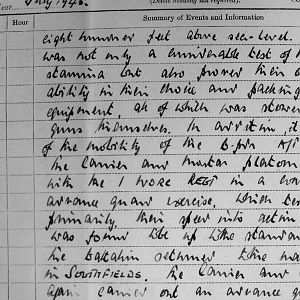 Year... July 1943.
(Delete heading not required).
Hour
Summary of Events and Information
eight hundred feet above sea-level.
was not only a considerable test of
stamina but also proved their
ability in their choice and packing
equipment, all of which was stowed
guns themselves. In addition, it
of the mobility of the
the Carrier and Mortar platoon
with the 1 WORC REGT in a
advance guard exercise, which
primarily, their speed into action
was found to be up to the standard
the battalion returned to the
in SOUTHFIELDS. The Carrier and
again carried out an advance